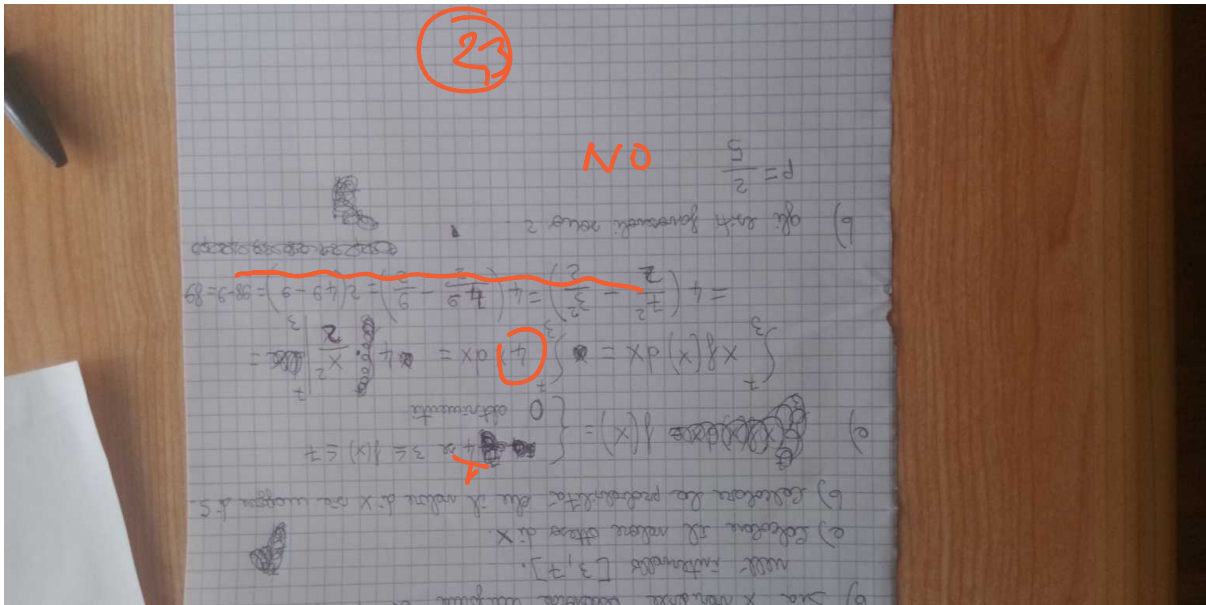 6) Sia X variabile
nell'intervallo [3,7].
a) Calcolare il valore atteso di X.
b) Calcolare la probabilità che il valore di X sia maggiore di 5.
a) f(x) = { 4 se 3 ≤ f(x) ≤ 7
0 altrimenti
∫₃⁷ x f(x) dx = ∫₃⁷ 4x dx = 4 x²/2 |₃⁷ =
= 4 (7²/2 - 3²/2) = 4 (49/2 - 9/2) = 2 (49 - 9) = 98 - 9 = 89
b) gli esiti favorevoli sono 2
P = 2/5
NO
23